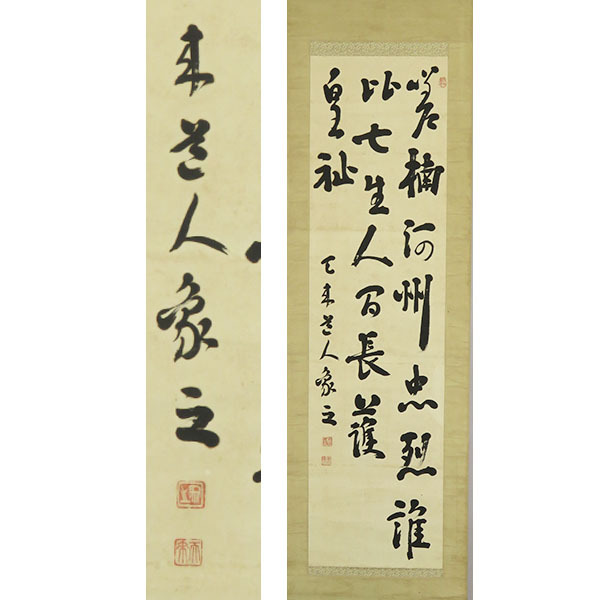 嗟楠河州忠烈誰
比七生人間長護
皇祉
乙未道人象之
未道人象之